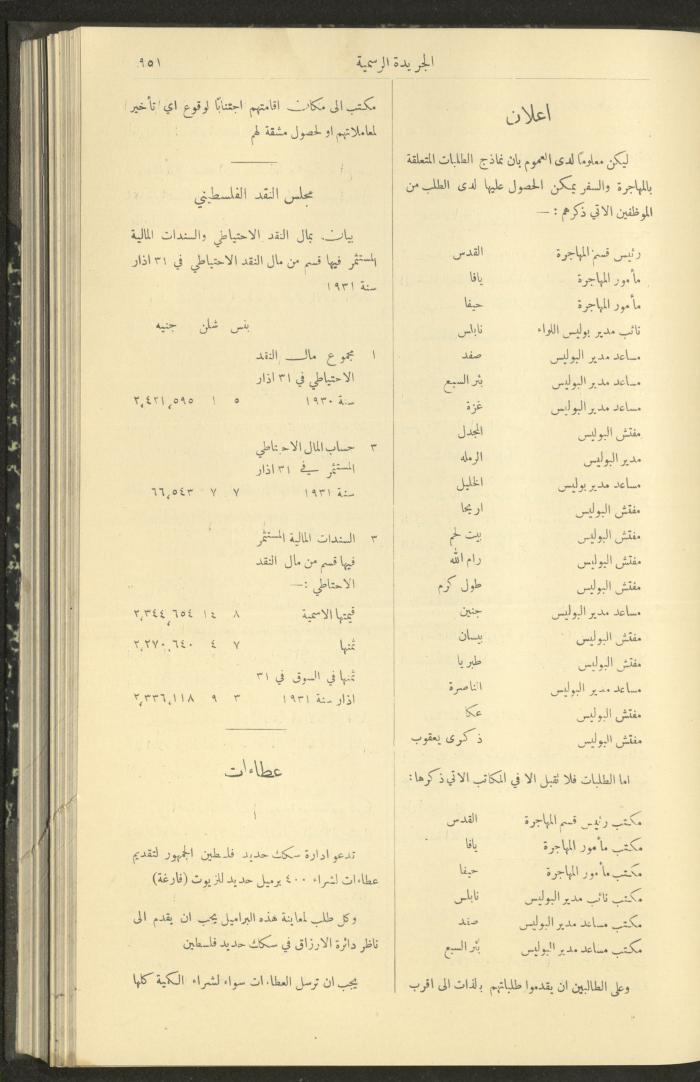 الجريدة الرسمية ٩٥١
اعلان
ليكن معلومًا لدى العموم بان نماذج الطلبات المتعلقة
بالمهاجرة والسفر يمكن الحصول عليها لدى الطلب من
الموظفين الاتي ذكرهم : —
رئيس قسم المهاجرة القدس
مأمور المهاجرة يافا
مأمور المهاجرة حيفا
نائب مدير بوليس اللواء نابلس
مساعد مدير البوليس صفد
مساعد مدير البوليس بئر السبع
مساعد مدير البوليس غزة
مفتش البوليس المجدل
مدير البوليس الرمله
مساعد مدير بوليس الخليل
مفتش البوليس اريحا
مفتش البوليس بيت لحم
مفتش البوليس رام الله
مفتش البوليس طول كرم
مساعد مدير البوليس جنين
مفتش البوليس بيسان
مفتش البوليس طبريا
مساعد مدير البوليس الناصرة
مفتش البوليس عكا
مفتش البوليس ذكرى يعقوب
اما الطلبات فلا تقبل الا في المكاتب الاتي ذكرها :
مكتب رئيس قسم المهاجرة القدس
مكتب مأمور المهاجرة يافا
مكتب مأمور المهاجرة حيفا
مكتب نائب مدير البوليس نابلس
مكتب مساعد مدير البوليس صفد
مكتب مساعد مدير البوليس بئر السبع
وعلى الطالبين ان يقدموا طلباتهم بالذات الى اقرب
مكتب الى مكان اقامتهم اجتنابًا لوقوع اي تأخير
لمعاملاتهم او لحصول مشقة لهم
مجلس النقد الفلسطيني
بيان بمال النقد الاحتياطي والسندات المالية
المستثمر فيها قسم من مال النقد الاحتياطي في ٣١ اذار
سنة ١٩٣١
بنس شلن جنيه
١ مجموع مال النقد
الاحتياطي في ٣١ اذار
سنة ١٩٣٠ ٥ ١ ٢,٤٢١,٥٩٥
٣ حساب المال الاحتياطي
المستثمر في ٣١ اذار
سنة ١٩٣١ ٧ ٧ ٦٦,٥٤٣
٣ السندات المالية المستثمر
فيها قسم من مال النقد
الاحتاطي : —
قيمتها الاسمية ٨ ١٤ ٢,٣٤٤,٦٥٤
ثمنها ٧ ٤ ٢,٢٧٠,٦٤٠
ثمنها في السوق في ٣١
اذار سنة ١٩٣١ ٣ ٩ ٢,٣٣٦,١١٨
عطاءات
١
تدعو ادارة سكك حديد فلسطين الجمهور لتقديم
عطاءات لشراء ٤٠٠ برميل حديد للزيوت (فارغة)
وكل طلب لمعاينة هذه البراميل يجب ان يقدم الى
ناظر دائرة الارزاق في سكك حديد فلسطين
يجب ان ترسل العطاءات سواء لشراء الكمية كلها